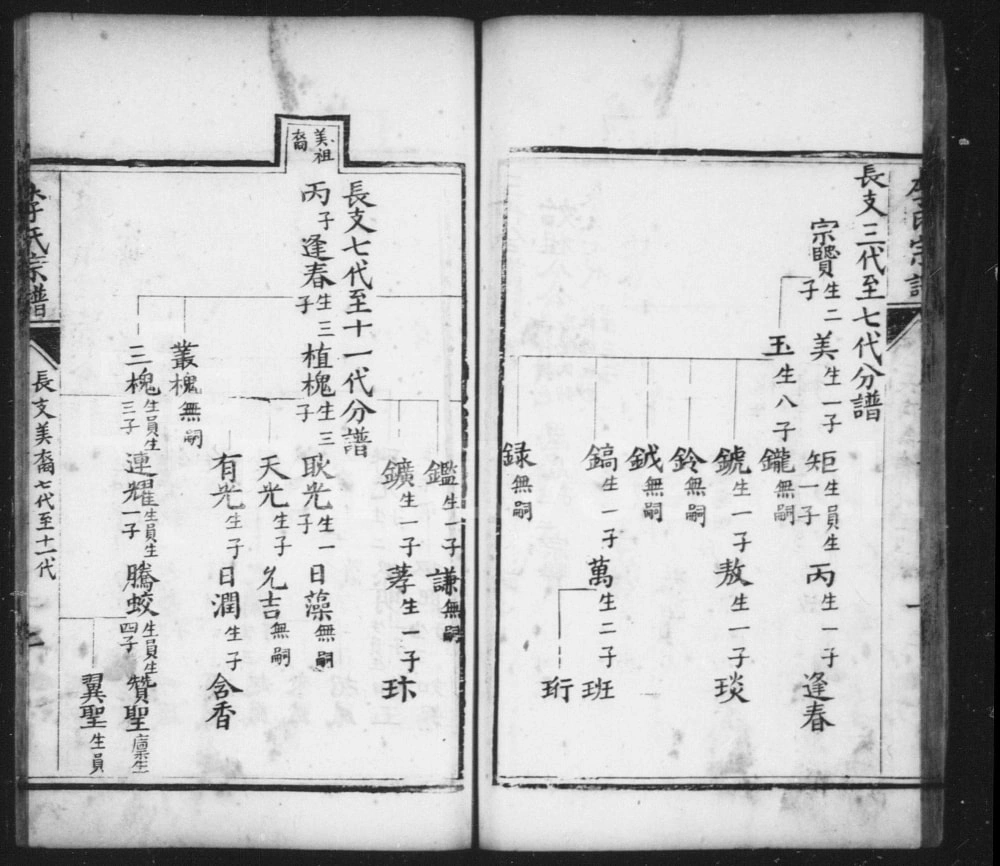 李氏宗譜
長支三代至七代分譜
宗賢生二子 美生一子 矩生員生一子 丙生一子 逢春
玉生八子 鑨無嗣
鋶生一子 敖生一子 琰
鈴無嗣
鉞無嗣
鎬生一子 萬生二子 班
珩
録無嗣
鑑生一子 謙無嗣
鑛生一子 荸生一子 玤
美祖裔
長支七代至十一代分譜
丙子逢春生三子 植槐生三子 耿光生一子 日藻無嗣
天光生子 允吉無嗣
有光生子 日潤生子 含香
叢槐無嗣
三槐生員生三子 連耀生員生一子 騰蛟生員生四子 贊聖廩生
翼聖生員
李氏宗譜
長支美裔七代至十一代